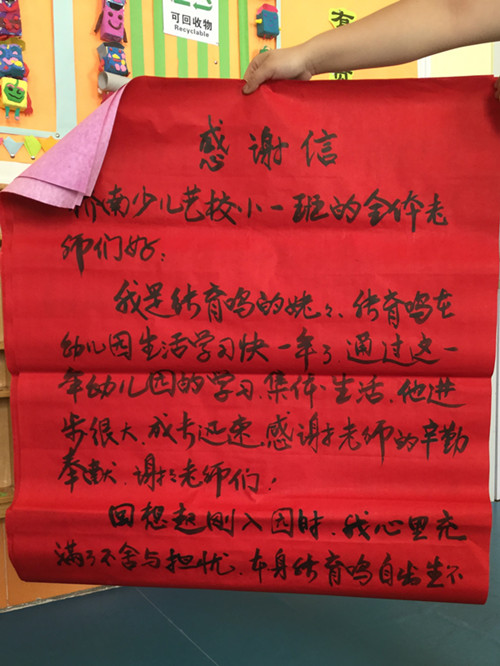 可回收物
Recyclable
有
感谢信
济南少儿艺校小一班的全体老
师们好:
我是张育鸣的姥々、张育鸣在
幼儿园生活学习快一年了.通过这一
年幼儿园的学习.集体生活.他进
步很大.成长迅速.感谢老师的辛勤
奉献.谢谢老师们!
回想起刚入园时.我心里充
满了不舍与担忧.本身张育鸣自出生不